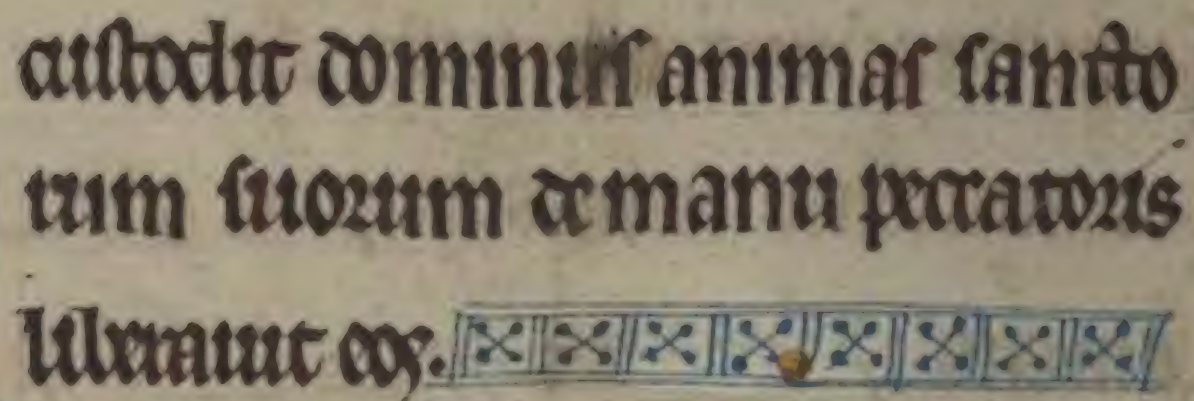 custodit dominus animas sancto
rum suorum de manu peccatoris
liberauit eos.